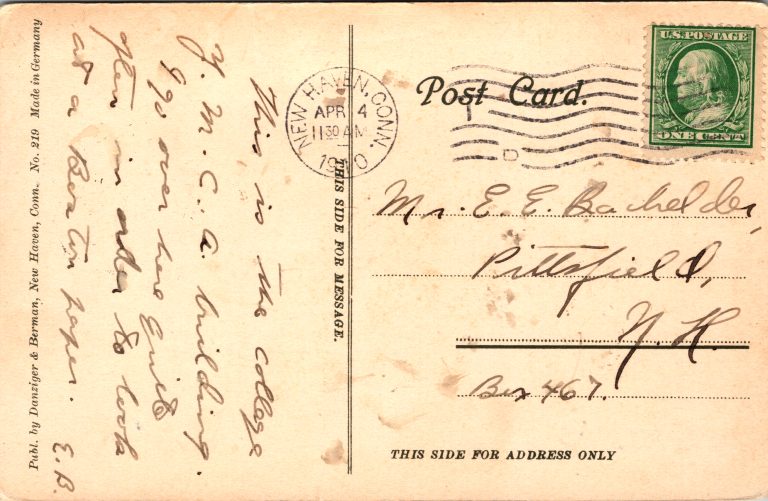 Publ. by Danziger & Berman, New Haven, Conn. No. 219 Made in Germany
This is the college
Y. M. C. A. building.
I go over here quite
often in order to look
at a Boston paper. E. B.
THIS SIDE FOR MESSAGE.
NEW HAVEN, CONN.
APR 4
11 30 AM
1910
D
Post Card.
U.S. POSTAGE
ONE CENT
Mr. E. E. Bachelder,
Pittsfield,
N. H.
Box 467.
THIS SIDE FOR ADDRESS ONLY